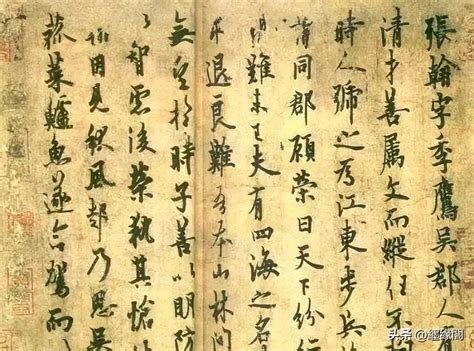 張翰字季鷹吳郡人
清才善屬文而縱任不
時人號之為江東步兵
謂同郡顧榮曰天下紛
難未已夫有四海之名
求退良難吾本山林間
無望於時子善以明防
以智慮後榮執其愴
翰因見秋風起乃思吳
菰菜鱸魚遂命駕而
头条